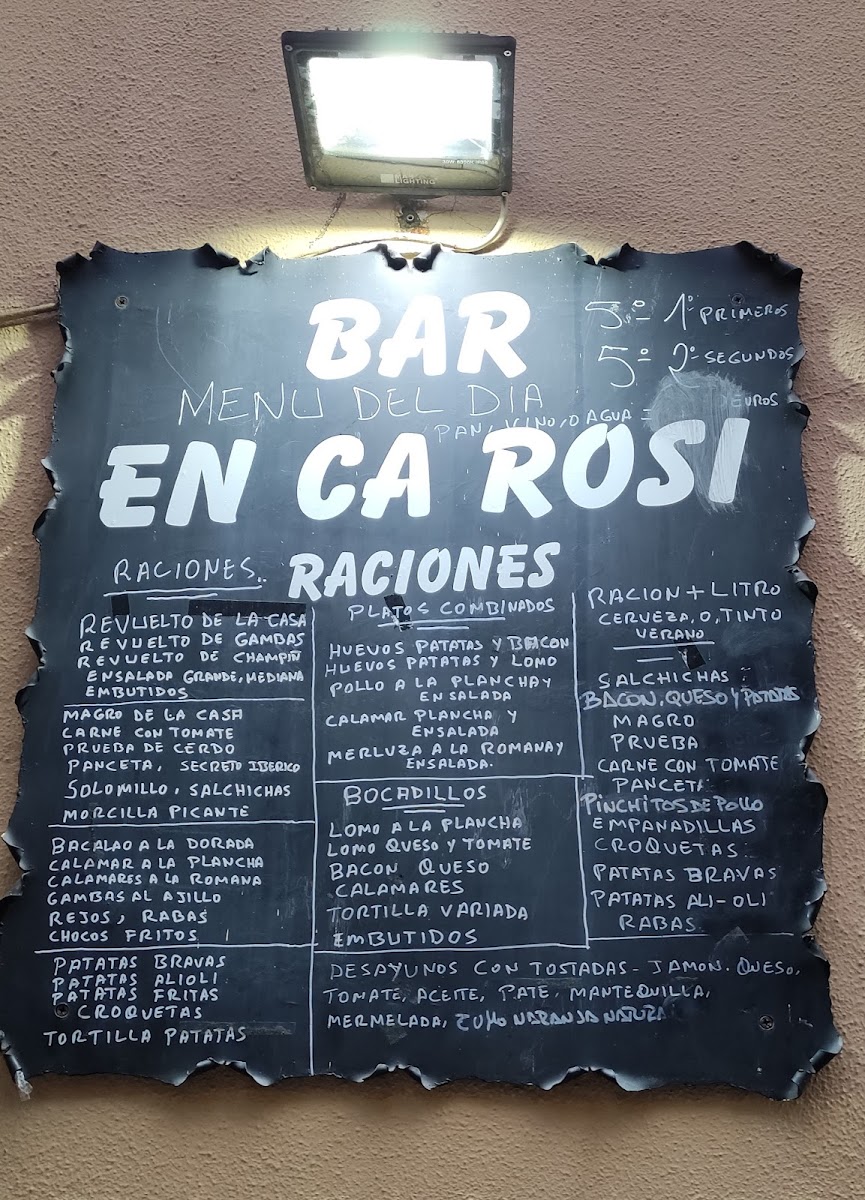 LIGHTING
BAR
5º - 1º PRIMEROS
5º 2º SEGUNDOS
MENU DEL DIA
PAN, VINO, O AGUA = EUROS
EN CA ROSI
RACIONES..
RACIONES
REVUELTO DE LA CASA
REVUELTO DE GAMBAS
REVUELTO DE CHAMPIÑ
ENSALADA GRANDE, MEDIANA
EMBUTIDOS
MAGRO DE LA CASA
CARNE CON TOMATE
PRUEBA DE CERDO
PANCETA, SECRETO IBERICO
SOLOMILLO, SALCHICHAS
MORCILLA PICANTE
BACALAO A LA DORADA
CALAMAR A LA PLANCHA
CALAMARES A LA ROMANA
GAMBAS AL AJILLO
REJOS, RABAS
CHOCOS FRITOS
PATATAS BRAVAS
PATATAS ALIOLI
PATATAS FRITAS
CROQUETAS
TORTILLA PATATAS
PLATOS COMBINADOS
HUEVOS PATATAS Y BACON
HUEVOS PATATAS Y LOMO
POLLO A LA PLANCHA Y
ENSALADA
CALAMAR PLANCHA Y
ENSALADA
MERLUZA A LA ROMANA Y
ENSALADA.
BOCADILLOS
LOMO A LA PLANCHA
LOMO QUESO Y TOMATE
BACON QUESO
CALAMARES
TORTILLA VARIADA
EMBUTIDOS
RACION + LITRO
CERVEZA, O, TINTO
VERANO
SALCHICHAS
BACON, QUESO Y PATATAS
MAGRO
PRUEBA
CARNE CON TOMATE
PANCETA
PINCHITOS DE POLLO
EMPANADILLAS
CROQUETAS
PATATAS BRAVAS
PATATAS ALI-OLI
RABAS
DESAYUNOS CON TOSTADAS - JAMON. QUESO,
TOMATE, ACEITE, PATE, MANTEQUILLA,
MERMELADA, ZUMO NARANJA NATURA